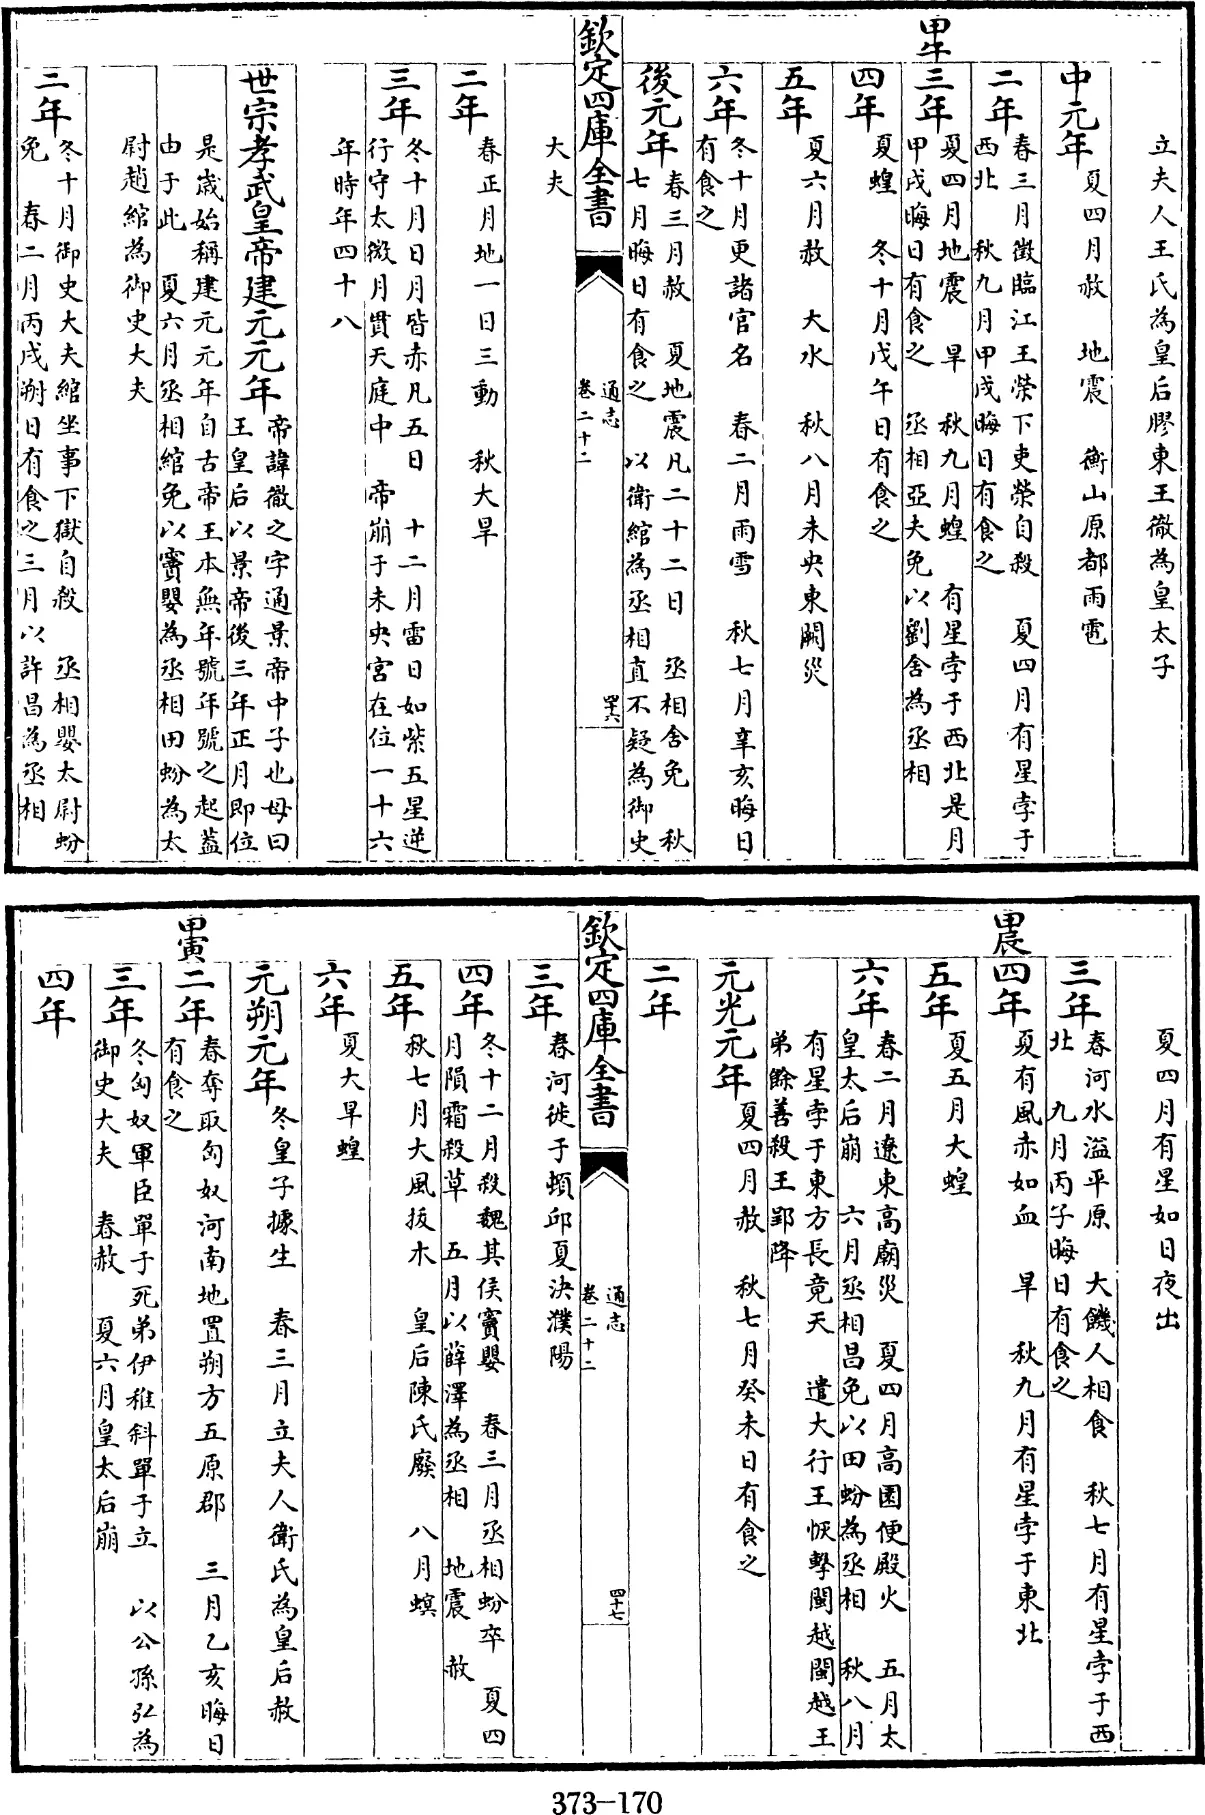 立夫人王氏為皇后膠東王徹為皇太子
中元年
夏四月赦　地震　衡山原都雨雹
二年
春三月徵臨江王榮下吏榮自殺　夏四月有星孛于
西北　秋九月甲戌晦日有食之
甲午
三年
夏四月地震　旱　秋九月蝗　有星孛于西北是月
甲戌晦日有食之　丞相亞夫免以劉舍為丞相
四年
夏蝗　冬十月戊午日有食之
五年
夏六月赦　大水　秋八月未央東闕災
六年
冬十月更諸官名　春二月雨雪　秋七月辛亥晦日
有食之
後元年
春三月赦　夏地震凡二十二日　丞相舍免　秋
七月晦日有食之　以衛綰為丞相直不疑為御史
欽定四庫全書
通志
卷二十二
四十六
大夫
二年
春正月地一日三動　秋大旱
三年
冬十月日月皆赤凡五日　十二月雷日如紫五星逆
行守太微月貫天庭中　帝崩于未央宮在位一十六
年時年四十八
世宗孝武皇帝建元元年
帝諱徹之字通景帝中子也母曰
王皇后以景帝後三年正月即位
是歲始稱建元元年自古帝王本無年號年號之起蓋
由于此　夏六月丞相綰免以竇嬰為丞相田蚡為太
尉趙綰為御史大夫
二年
冬十月御史大夫綰坐事下獄自殺　丞相嬰太尉蚡
免　春二月丙戌朔日有食之三月以許昌為丞相
夏四月有星如日夜出
三年
春河水溢平原　大饑人相食　秋七月有星孛于西
北　九月丙子晦日有食之
甲辰
四年
夏有風赤如血　旱　秋九月有星孛于東北
五年
夏五月大蝗
六年
春二月遼東高廟災　夏四月高園便殿火　五月太
皇太后崩　六月丞相昌免以田蚡為丞相　秋八月
有星孛于東方長竟天　遣大行王恢擊閩越閩越王
弟餘善殺王郢降
元光元年
夏四月赦　秋七月癸未日有食之
二年
欽定四庫全書
通志
卷二十二
四十七
三年
春河徙于頓邱夏決濮陽
四年
冬十二月殺魏其侯竇嬰　春三月丞相蚡卒　夏四
月隕霜殺草　五月以薛澤為丞相　地震　赦
五年
秋七月大風拔木　皇后陳氏廢　八月螟
六年
夏大旱蝗
元朔元年
冬皇子據生　春三月立夫人衛氏為皇后赦
甲寅
二年
春奪取匈奴河南地置朔方五原郡　三月乙亥晦日
有食之
三年
冬匈奴軍臣單于死弟伊稚斜單于立　以公孫弘為
御史大夫　春赦　夏六月皇太后崩
四年
373—170